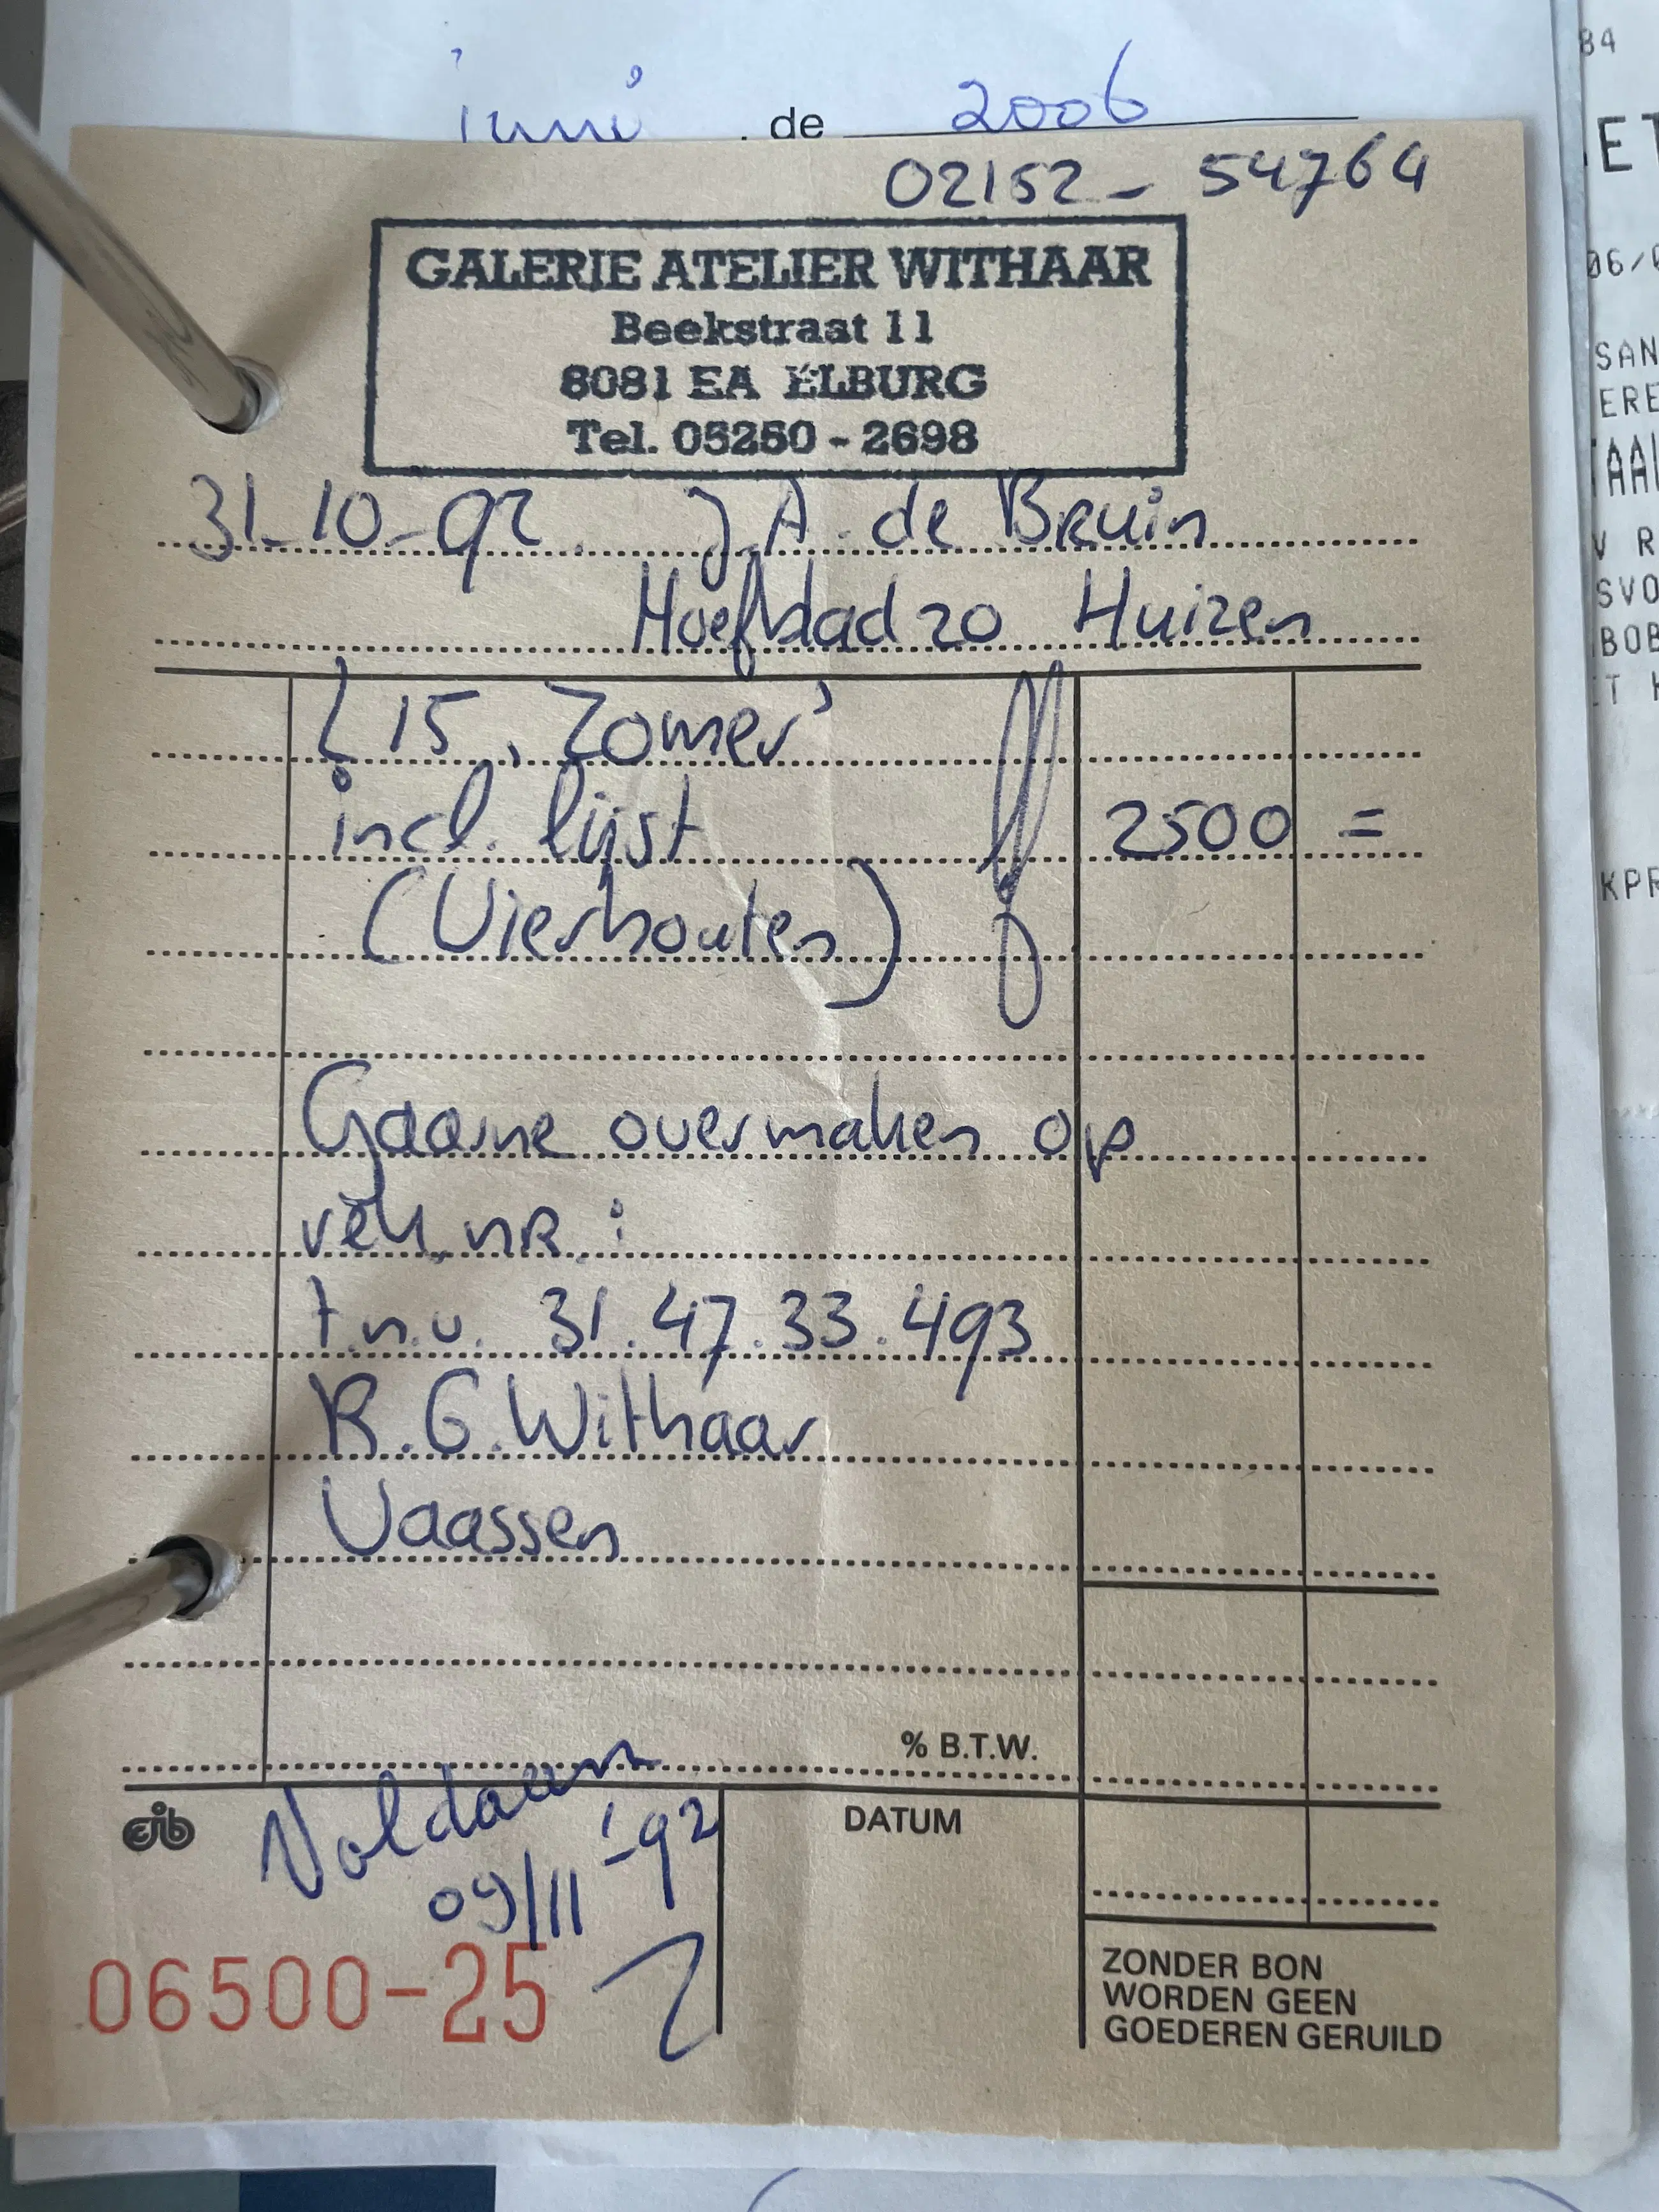 juni . de 2006
02152 - 54764
GALERIE ATELIER WITHAAR
Beekstraat 11
8081 EA ELBURG
Tel. 05250 - 2698
31-10-92 J.A. de Bruin
Hoefblad 20 Huizen
L 15 , Zomer'
incl. lijst f 2500 =
(Vierhouten)
Gaarne overmaken op
rek. nR. :
t.n.v. 31.47.33.493
R.G. Withaar
Vaassen
% B.T.W.
Voldaan
09/11 '-92
DATUM
06500-25
ZONDER BON
WORDEN GEEN
GOEDEREN GERUILD
84
ET
06/
SAN
ERE
TAAL
V R
SVO
BOB
ET
KPR